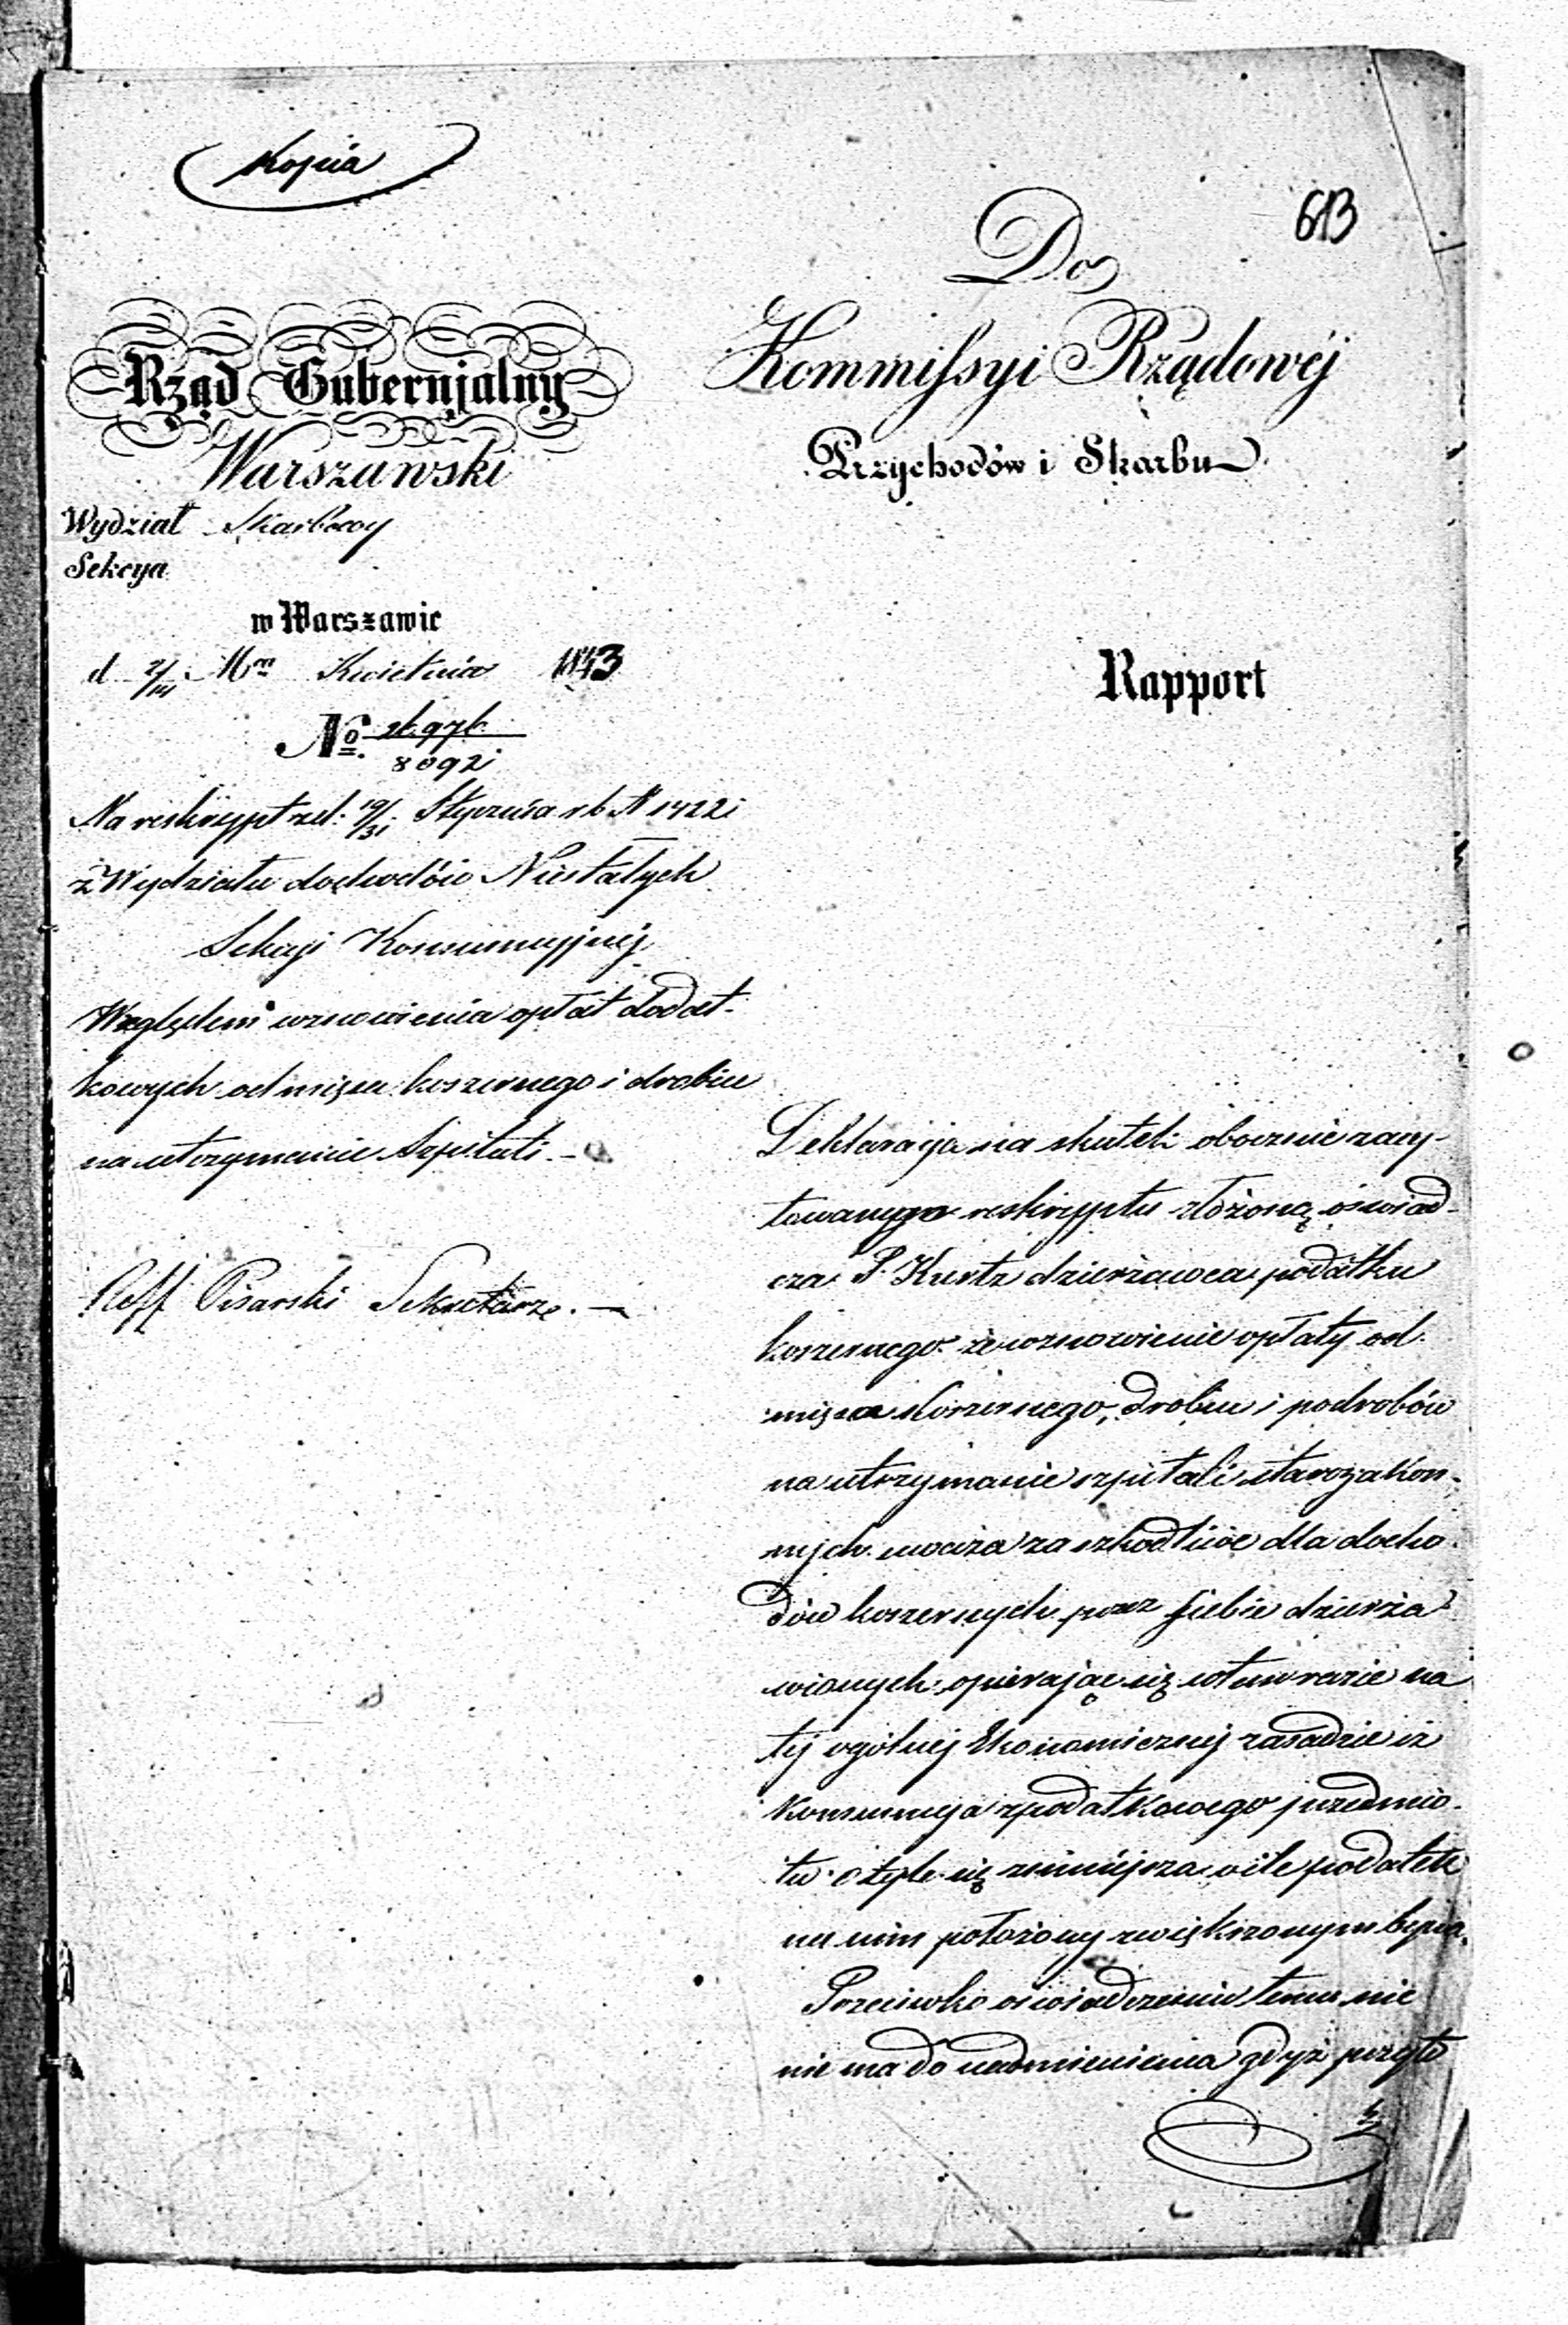 Kopia
613
Rząd Gubernjalny
Warszawski
Wydział Skarbowy
Sekcya
w Warszawie
d 2/14 Mca Kwietnia 1843
No.
8092
Na reskrypt z d: 19/31 Stycznia r b N 1422
z Wydziału dochodów Niestałych
Sekcyi Konsumcyjnéj
Względem wznowienia opłat dodat-
kowych od mięsa koszernego i drobiu
na utrzymanie Szpitali. -
Reff Pisarski Sekretarz. —
Do
Kommissyi Rządowéj
Przychodów i Skarbu
Rapport
Deklaracyą na skutek obocznie zacy-
towanego reskryptu złożoną, oświad-
cza P. Kurtz dzierżawca podatku
koszernego że wznowienie opłaty od
mięsa koszernego, drobiu i podrobów
na utrzymanie szpitali starozakon-
nych uważa za szkodliwe dla docho-
dów koszernych przez siebie dzierża-
wionych opierając się w tym razie na
téj ogólnéj Ekonomicznéj zasadzie iż
Konsumcya podatkowego przedmio-
tu o tyle się zmniejsza o ile podatek
na nim położony zwiększonym bywa.
Przeciwko oświadczeniu temu nic
nie ma do nadmienienia gdyż przyto